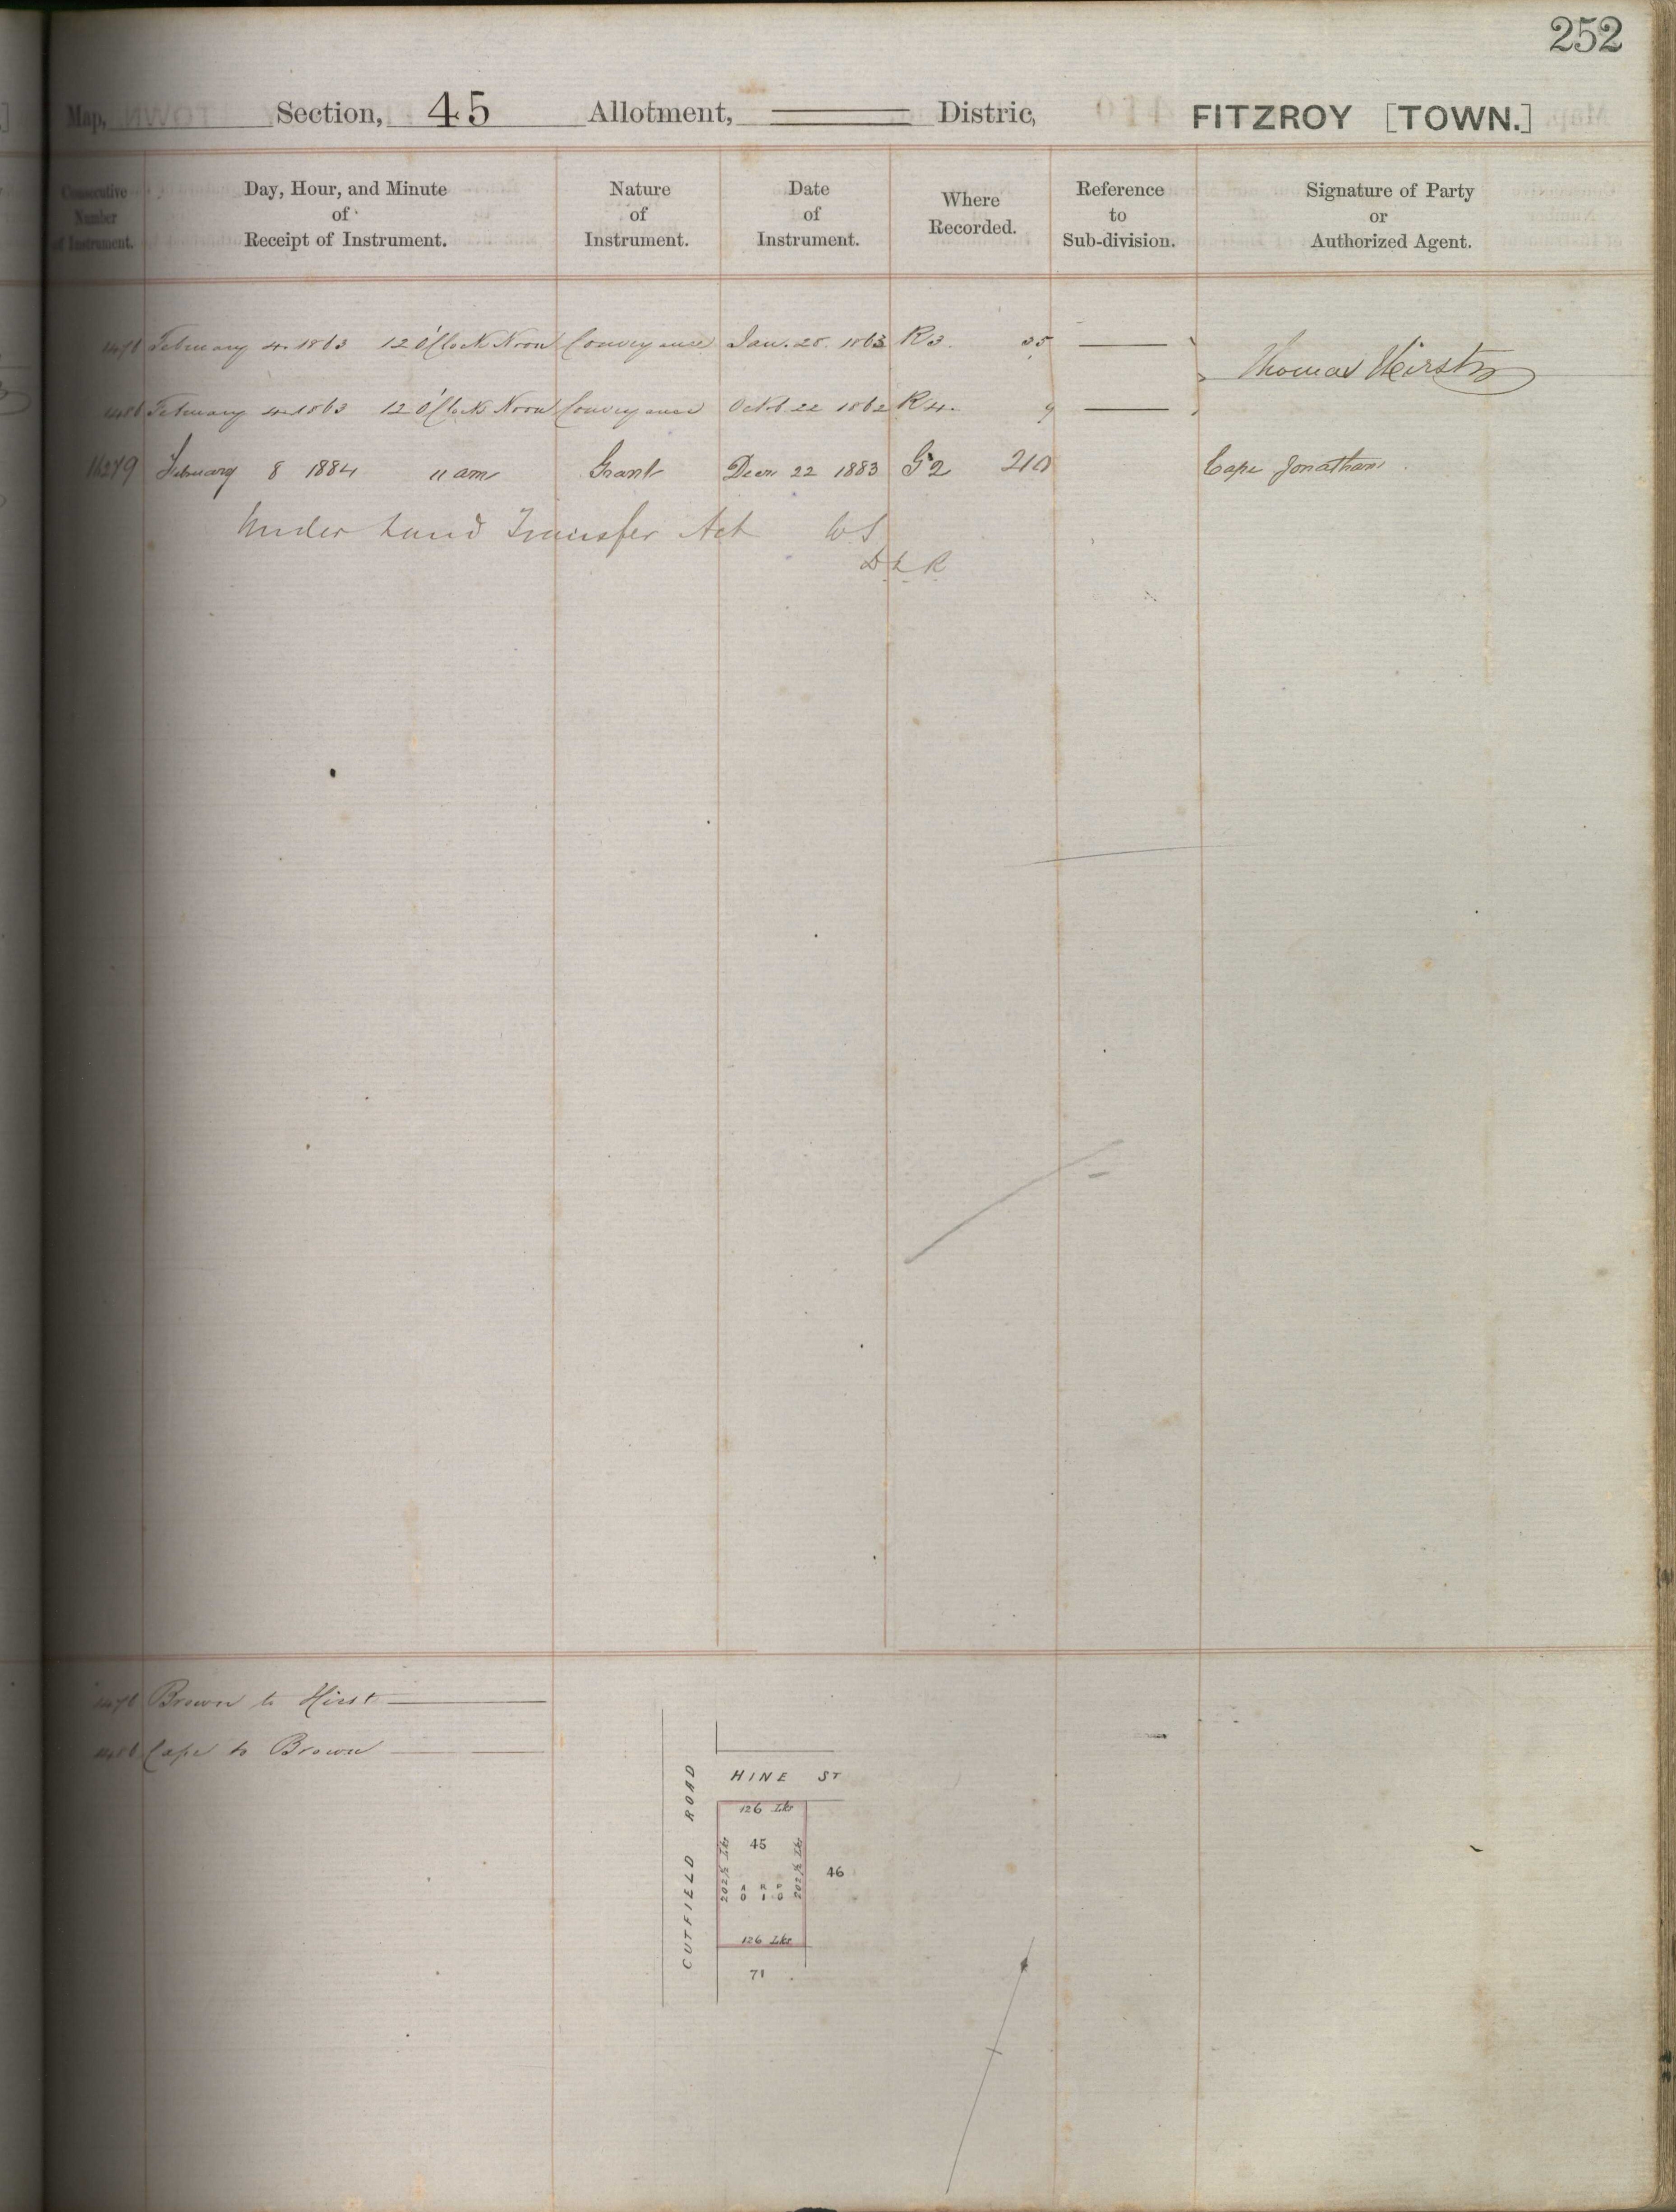 252
Map, Section, 45 Allotment, Distric, FITZROY [TOWN.]
Consecutive Number of Instrument.
Day, Hour, and Minute of Receipt of Instrument.
Nature of Instrument.
Date of Instrument.
Where Recorded.
Reference to Sub-division.
Signature of Party or Authorized Agent.
February 4. 1863 12 O'Clock Noon Conveyance Jan. 28. 1863 R3. 35
Thomas Hirst
February 4. 1863 12 O'Clock Noon Conveyance Octb 22 1862 R4. 9
16279 February 8 1884 11 am Grant Decr 22 1883 G2 210 Cape Jonathan
Under Land Transfer Act WS
DLR
Brown to Hirst
Cape to Brown
HINE ST
CUTFIELD ROAD
126 Lks
45
202½ Lks
202½ Lks
46
A R P
0 1 0
126 Lks
71